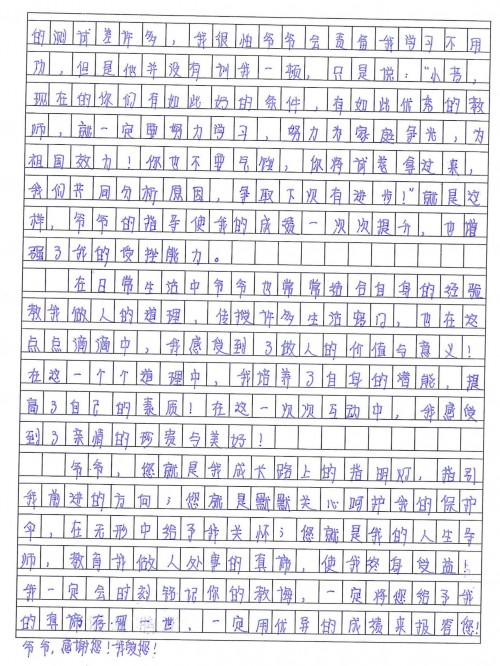 的测试差许多，我很怕爷爷会责备我学习不用
功，但是他并没有训我一顿，只是说：“小芳，
现在的你们有如此好的条件，有如此优秀的教
师，就一定要努力学习，努力为家庭争光，为
祖国效力！你也不要气馁，你将试卷拿过来，
我们共同分析原因，争取下次有进步！”就是这
样，爷爷的指导使我的成绩一次次提升，也增
强了我的受挫能力。
在日常生活中爷爷也常常结合自身的经验
教我做人的道理，传授许多生活窍门，也在这
点点滴滴中，我感受到了做人的价值与意义！
在这一个个道理中，我培养了自身的潜能，提
高了自己的素质！在这一次次互动中，我感受
到了亲情的珍贵与美好！
爷爷，您就是我成长路上的指明灯，指引
我前进的方向；您就是默默关心呵护我的保护
伞，在无形中给予我关怀；您就是我的人生导
师，教育我做人处事的真谛，使我终身受益！
我一定会时刻铭记你的教诲，一定将您给予我
的真谛存 世，一定用优异的成绩来报答您！
爷爷，感谢您！我爱您！